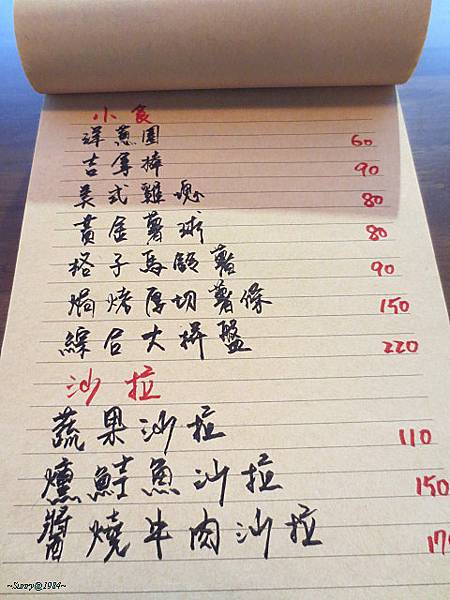 小食
洋蔥圈 60
吉事棒 90
美式雞塊 80
黃金薯球 80
格子馬鈴薯 90
焗烤厚切薯條 150
綜合大拼盤 220
沙拉
蔬果沙拉 110
燻鮭魚沙拉 150
醬燒牛肉沙拉 17
~Sunny@1984~